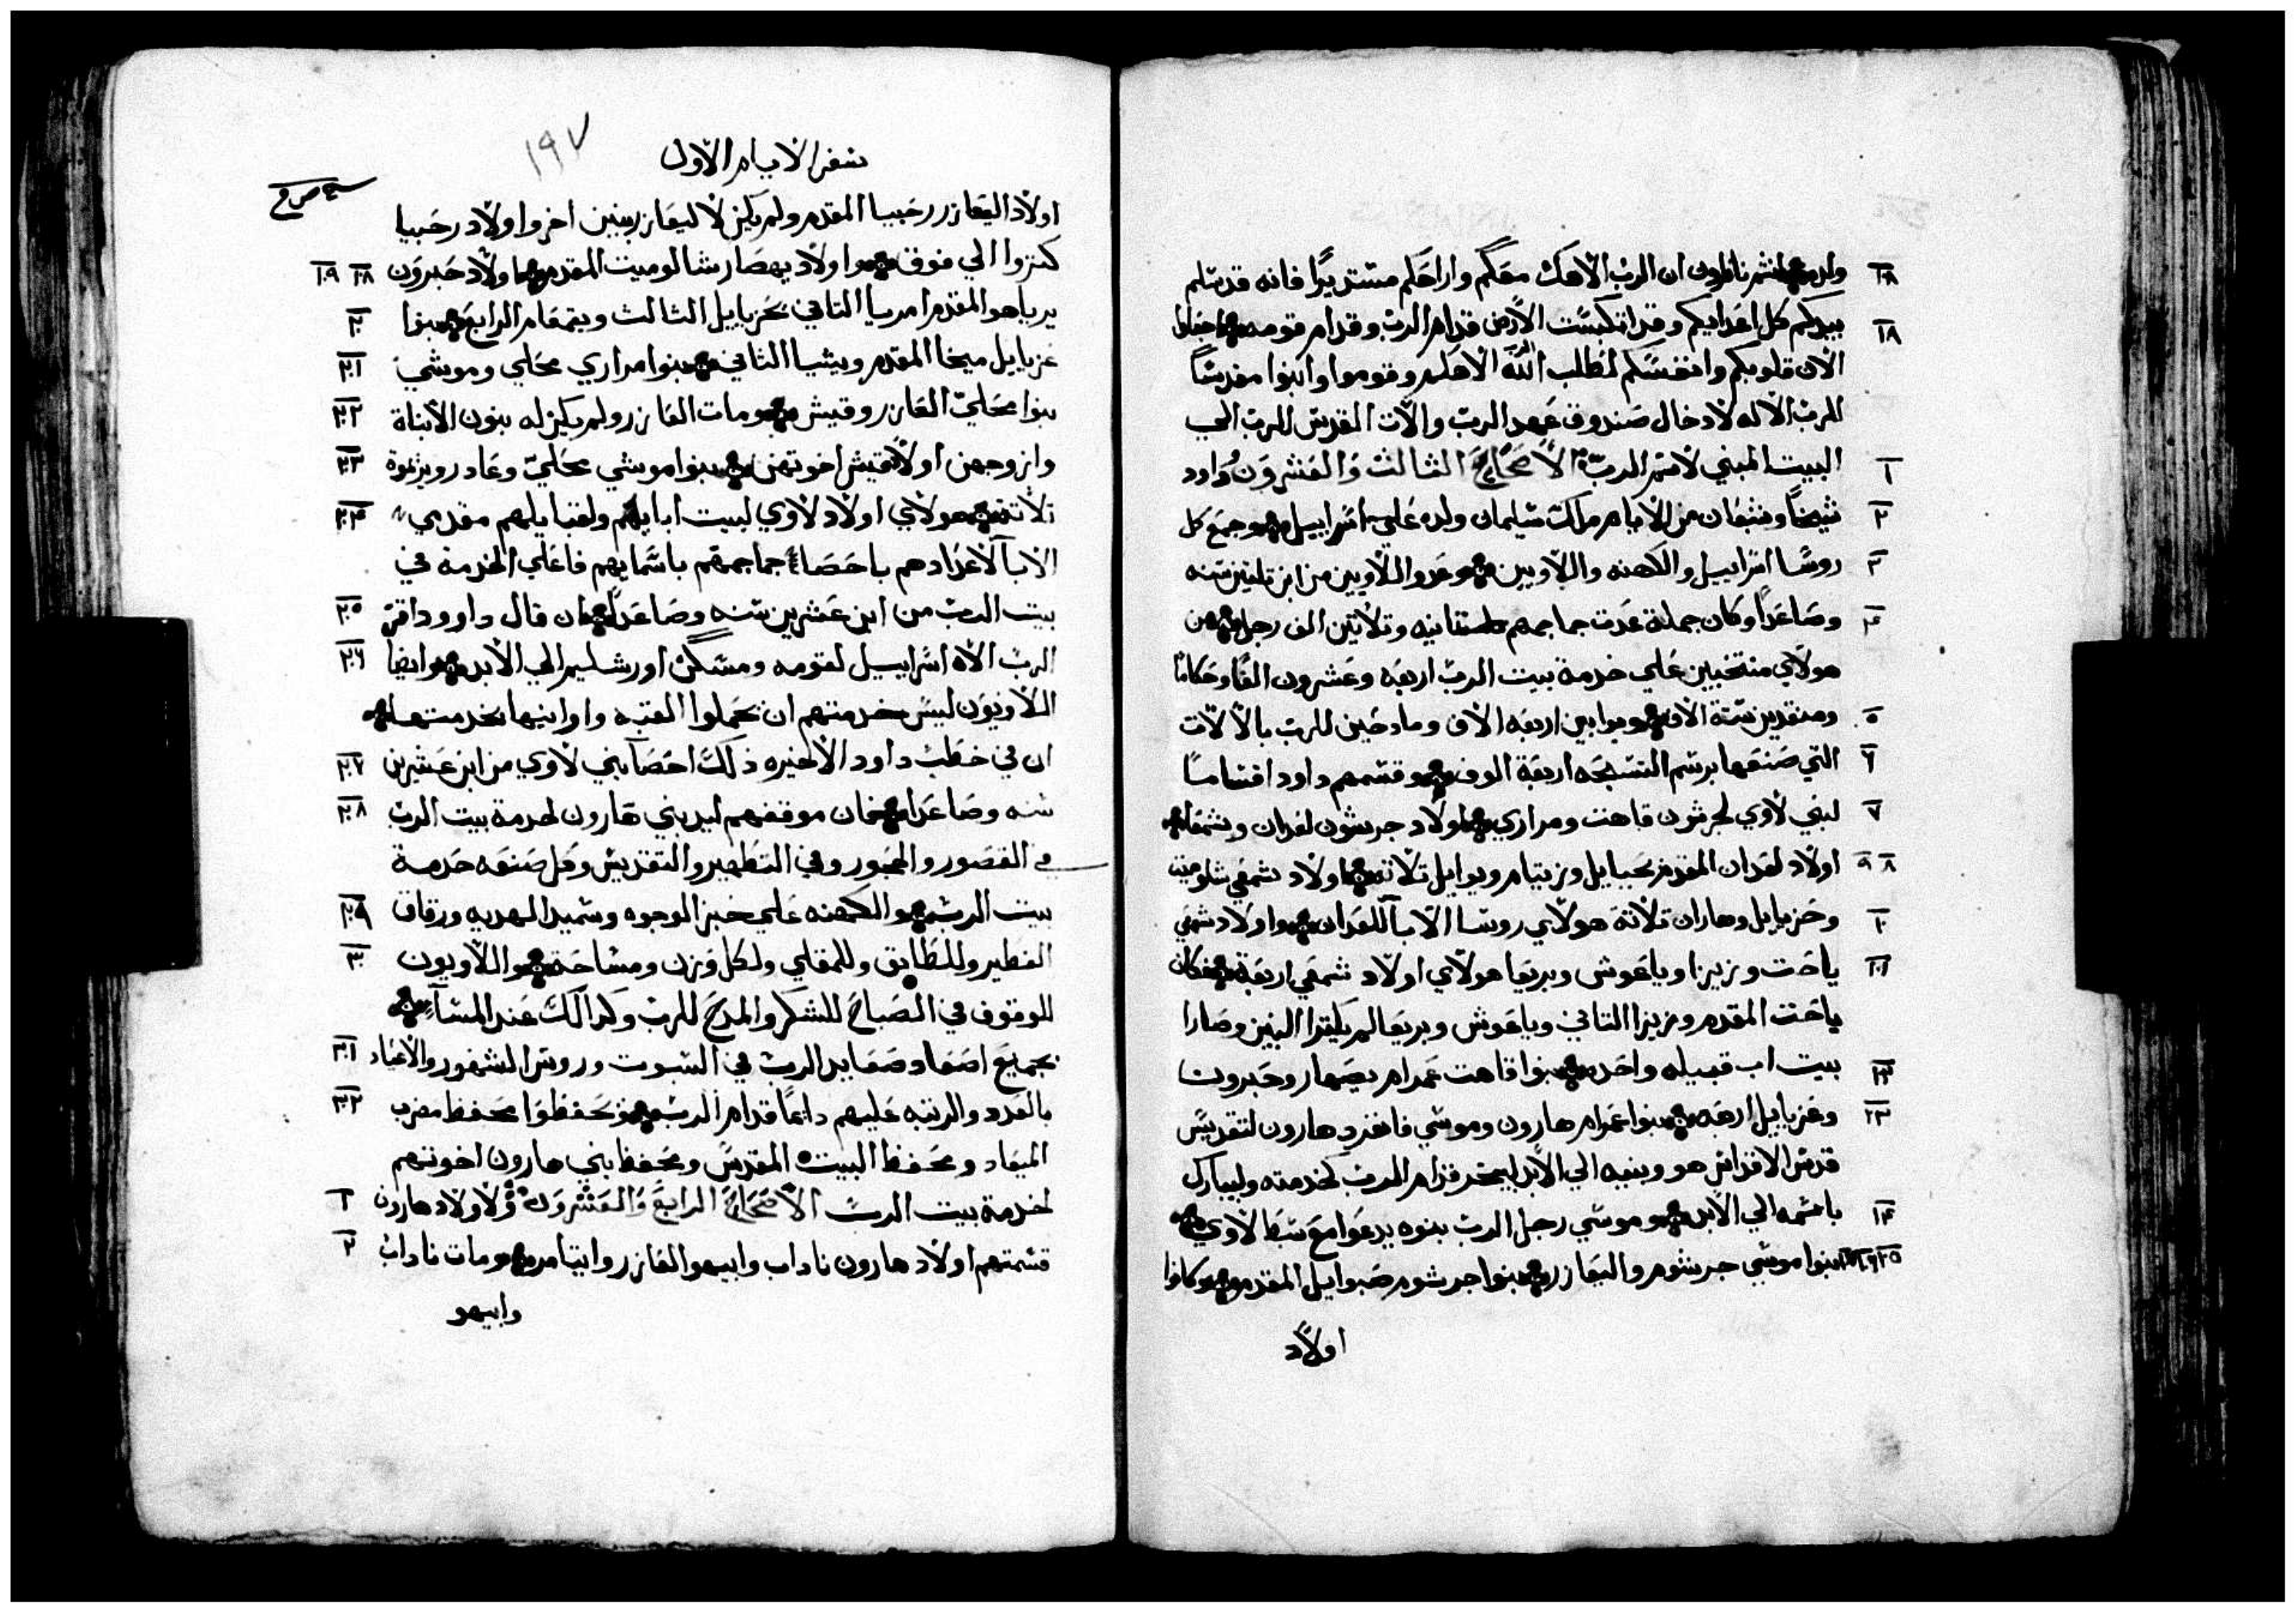 ان الرب الاهك معكم واراحكم مستديرًا فانه قد سلم
بيدكم كل اعدايكم وقد انكبست الارض قدام الرب وقدام قومه
الان قلوبكم وانفسكم لطلب الله الاهكم وقوموا وابنوا مقدسًا
للرب الاله لادخال صندوق عهد الرب والات المقدس للرب الي
البيت المبني لاسم الرب الاصحاح الثالث والعشرون وداود
شيخًا وشبعان من الايام ملك سليمان ولده علي اسراييل وجمع كل
روسًا اسراييل والكهنه واللاويين وعدوا اللاويين من ابن تلتين سنه
وصاعدًا وكان جملة عدت جماجمهم تمانيه وتلاتين الف رجل من
هولاي منتخبين علي خدمة بيت الرب اربعه وعشرون الفًا وحكامًا
ومنقدين ستة الاف وبوابين اربعه الاف ومادحين للرب بالالات
التي صنعها برسم التسبحه اربعة الوف وقسمهم داود اقسامًا
لبني لاوي لجرشون قاهت ومراري اولاد جرشون لعدان وشمعي
اولاد لعدان المقدم يحيايل وزيتام ويوايل تلاته اولاد شمعي شلوميت
وحزيايل وهاران تلاتة هولاي روسا الابا للعدان واولاد شمعي
ياحت وزيزا وياعوش وبريعا هولاي اولاد شمعي اربعة فكان
ياحت المقدم وزيزا التاني وياعوش وبريعا لم يكترا البنين وصارا
بيت اب قبيله واحده بنوا قاهت عمرام يصهار وحبرون
وعزيايل اربعه بنوا عمرام هارون وموسي فانفرد هارون لتقديس
قدس الاقداس هو وبنيه الي الابد ليبخر قدام الرب لخدمته وليبارك
باسمه الي الابد وموسي رجل الرب بنوه يدعوا مع سبط لاوي
بنوا موسي جرشوم واليعازر بنوا جرشوم صبوايل المقدم وكانوا
اولاد
سفر الايام الاول
١٩٧
اولاد اليعازر رحبيا المقدم ولم يكن لاليعازر بنين اخر واولاد رحبيا
كتروا الي فوق اولاد يهصار شالوميت المقدم اولاد حبرون ١٨ ١٩
يرياهو المقدم امريا التاني يحزيايل الثالث ويقمعام الرابع بنوا ٢٠
عزيايل ميخا المقدم ويشيا الثاني بنوا مراري محلي وموشي ٢١
بنوا محلي العازر وقيش ومات العازر ولم يكن له بنون الا بناة ٢٢
وازوجهن اولاد قيش اخوتهن بنوا موشي محلي وعادر ويرموة ٢٣
تلاتة هولاي اولاد لاوي لبيت ابايهم ولقبايلهم مقدمي ٢٤
الابا لاعدادهم باحصاء جماجمهم باسمايهم فاعلي الخدمة في
بيت الرب من ابن عشرين سنه وصاعدًا ان قال داوود اقر ٢٥
الرب الاه اسراييل لقومه ومسكن اورشليم الي الابد وايضا ٢٦
اللاويون ليس خدمتهم ان يحملوا القبه واوانيها بخدمتها
ان في خطب داود الاخيره ذلك احصا بني لاوي من ابن عشرين ٢٧
سنه وصاعدًا فان موقفهم ليد بني هارون لخدمة بيت الرب ٢٨
في القصور والحجور وفي التطهير والتقديس وعل صنعه خدمة
بيت الرب والكهنه علي خبز الوجوه وسميد الهديه ورقاق ٢٩
الفطير وللطابق وللمقلي ولكل وزن ومساحة واللاويون ٣٠
للوقوف في الصباح للشكر والمدح للرب وكدالك عند المساء
بجميع اصعاد صعايد الرب في السبوت وروس الشهور والاعياد ٣١
بالعدد والرتبه عليهم دايمًا قدام الرب ويحفظوا محفظ مضرب ٣٢
الميعاد ومحفظ البيت المقدس ومحفظ بني هارون اخوتهم
لخدمة بيت الرب الاصحاح الرابع والعشرون ولاولاد هارون ١
قسمتهم اولاد هارون ناداب وابيهو العازر وايتامر ومات ناداب ٢
وابيهو